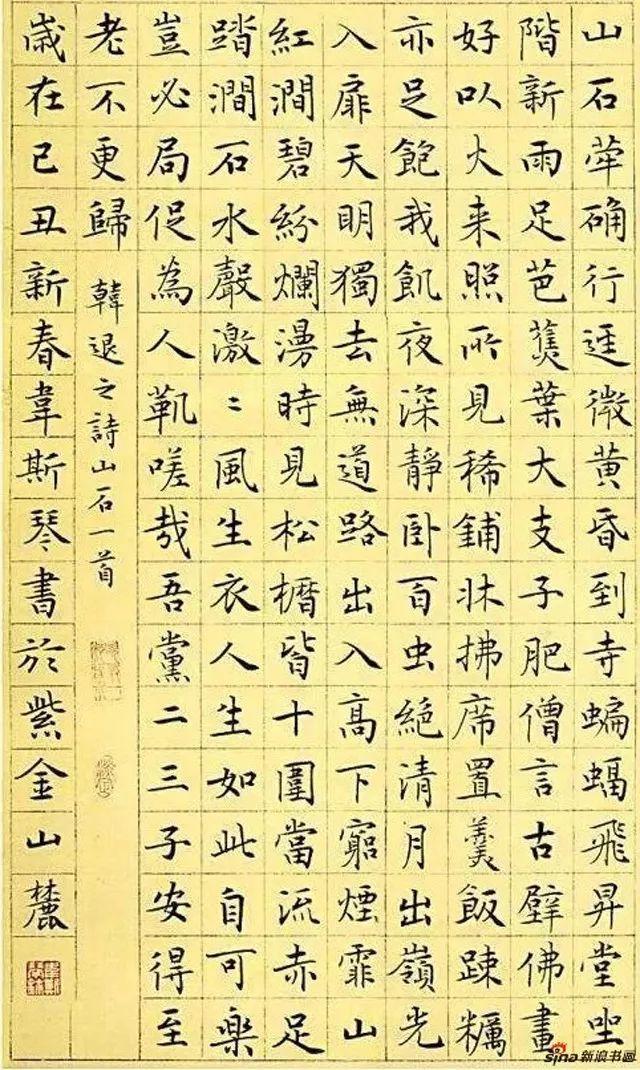 山石荦确行迳微黄昏到寺蝙蝠飛昇堂坐
階新雨足芭蕉葉大支子肥僧言古壁佛畫
好以火来照所見稀鋪牀拂席置羹飯踈糲
亦足飽我飢夜深靜卧百虫絶清月出嶺光
入扉天明獨去無道路出入高下窮煙霏山
紅澗碧紛爛漫時見松櫪皆十圍當流赤足
踏澗石水聲激〻風生衣人生如此自可樂
豈必局促為人鞿嗟哉吾黨二三子安得至
老不更歸 韓退之詩山石一首
歲在己丑新春韋斯琴書於紫金山麓
sina新浪书画